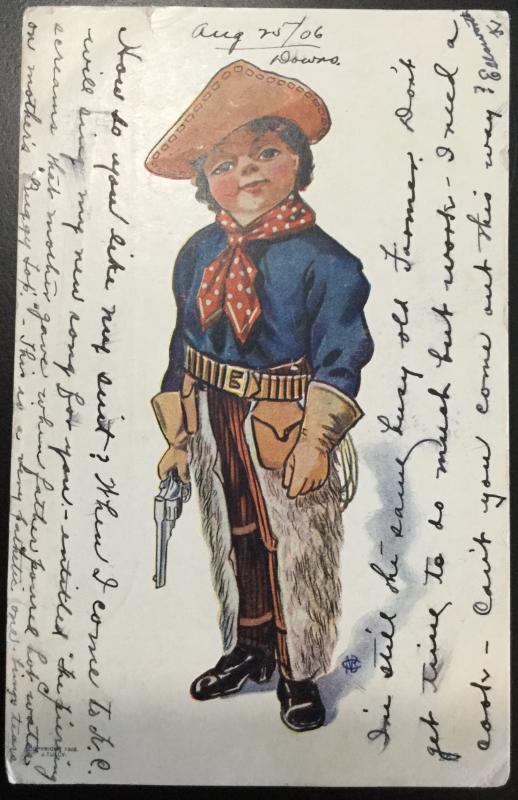 Aug 25/06
Downs.
How do you like my suit? When I come to K.C.
will sing my new song for you - entitled "The piercing
screams that mother gave when father poured hot water
on mother's Buggy top." - This is a very pathetic one - brings tears
I'm still the same busy old Farmer. Don't
get time to do much but work - I need a
cook - Can't you come out this way?
COPYRIGHT 1906